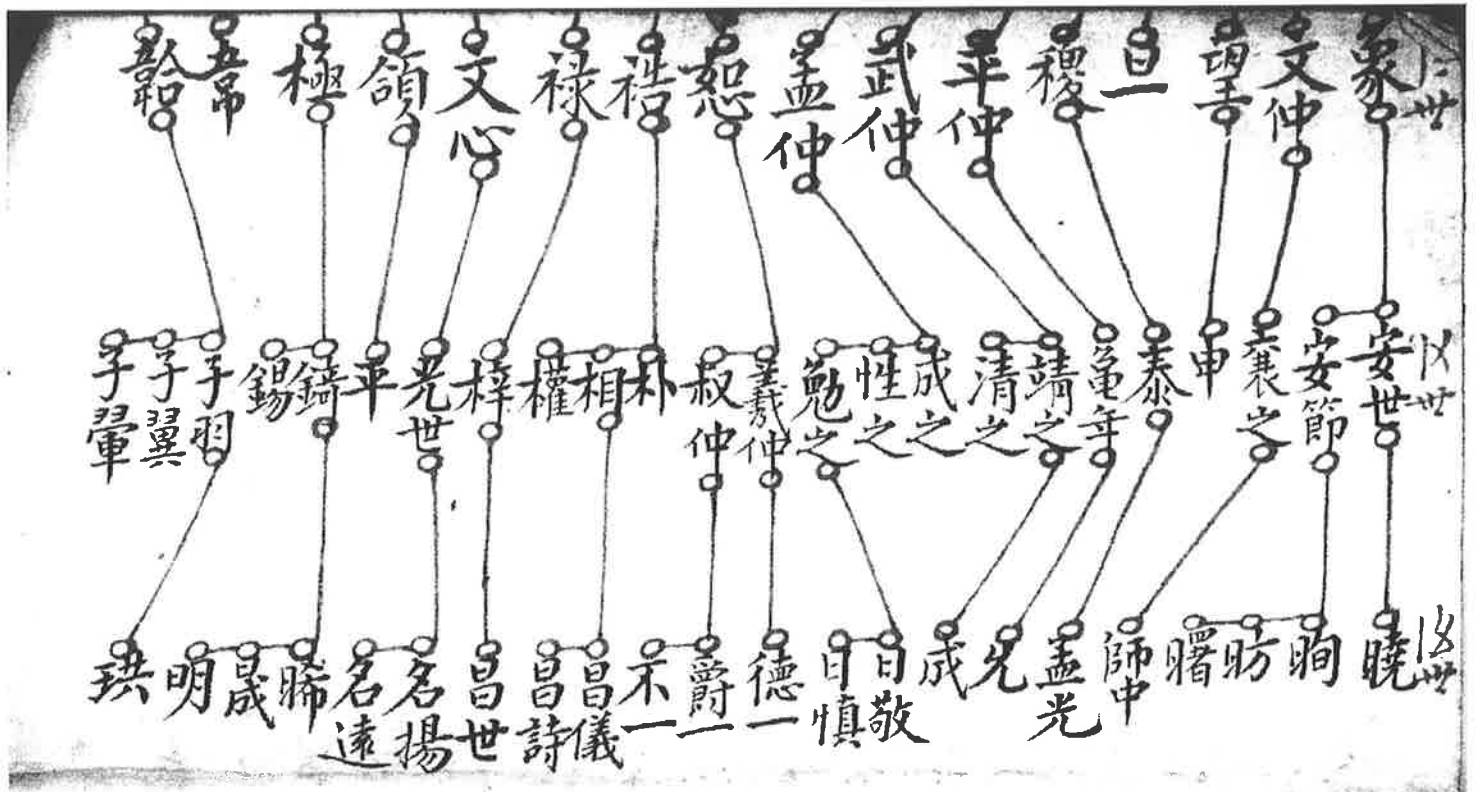 象
文仲
望
旦一
稷
平仲
武仲
孟仲
恕
祿
文心
領
安世
安節
襄之
申
泰
龜年
靖之
清之
成之
性之
勉之
羲仲
叔仲
朴
相
權
梓
光世
平
錡
錫
子羽
子翼
子翬
18世
曉
昉
曙
師中
孟光
成
日敬
日慎
德一
爵一
不一
昌儀
昌詩
昌世
名揚
名遠
晞
晟
明
珙